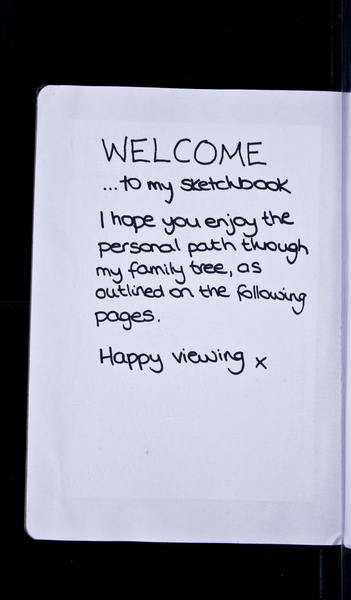 WELCOME
...to my sketchbook
I hope you enjoy the
personal path through
my family tree, as
outlined on the following
pages.
Happy viewing x